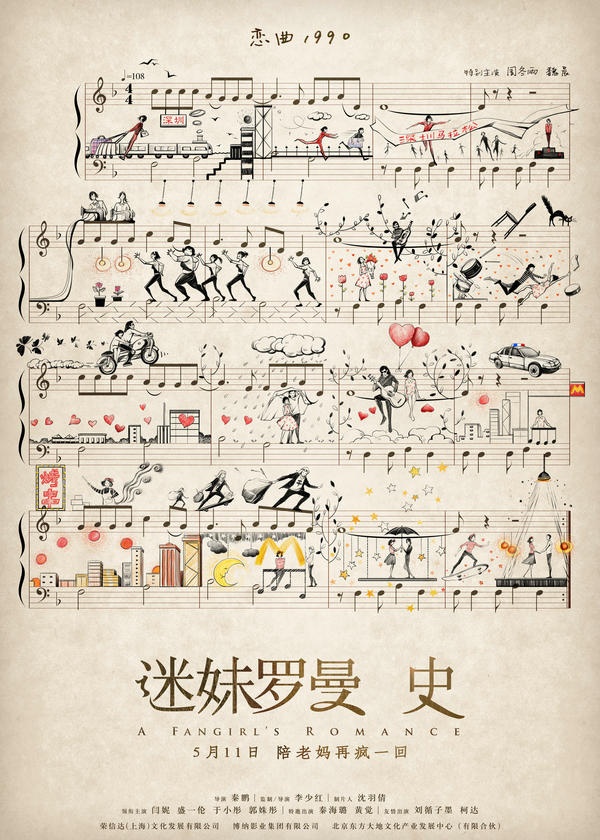 恋曲1990
♩=108
特别主演 周冬雨 魏晨
4
4
深圳
深圳马拉松
M
M
迷妹罗曼 史
A FANGIRL'S ROMANCE
5月11日 陪老妈再疯一回
导演 秦鹏 | 监制/导演 李少红 | 制片人 沈羽倩
领衔主演 闫妮 盛一伦 于小彤 郭姝彤 | 特邀出演 秦海璐 黄觉 | 友情出演 刘循子墨 柯达
荣信达(上海)文化发展有限公司 博纳影业集团有限公司 北京东方大地文化产业发展中心(有限合伙)